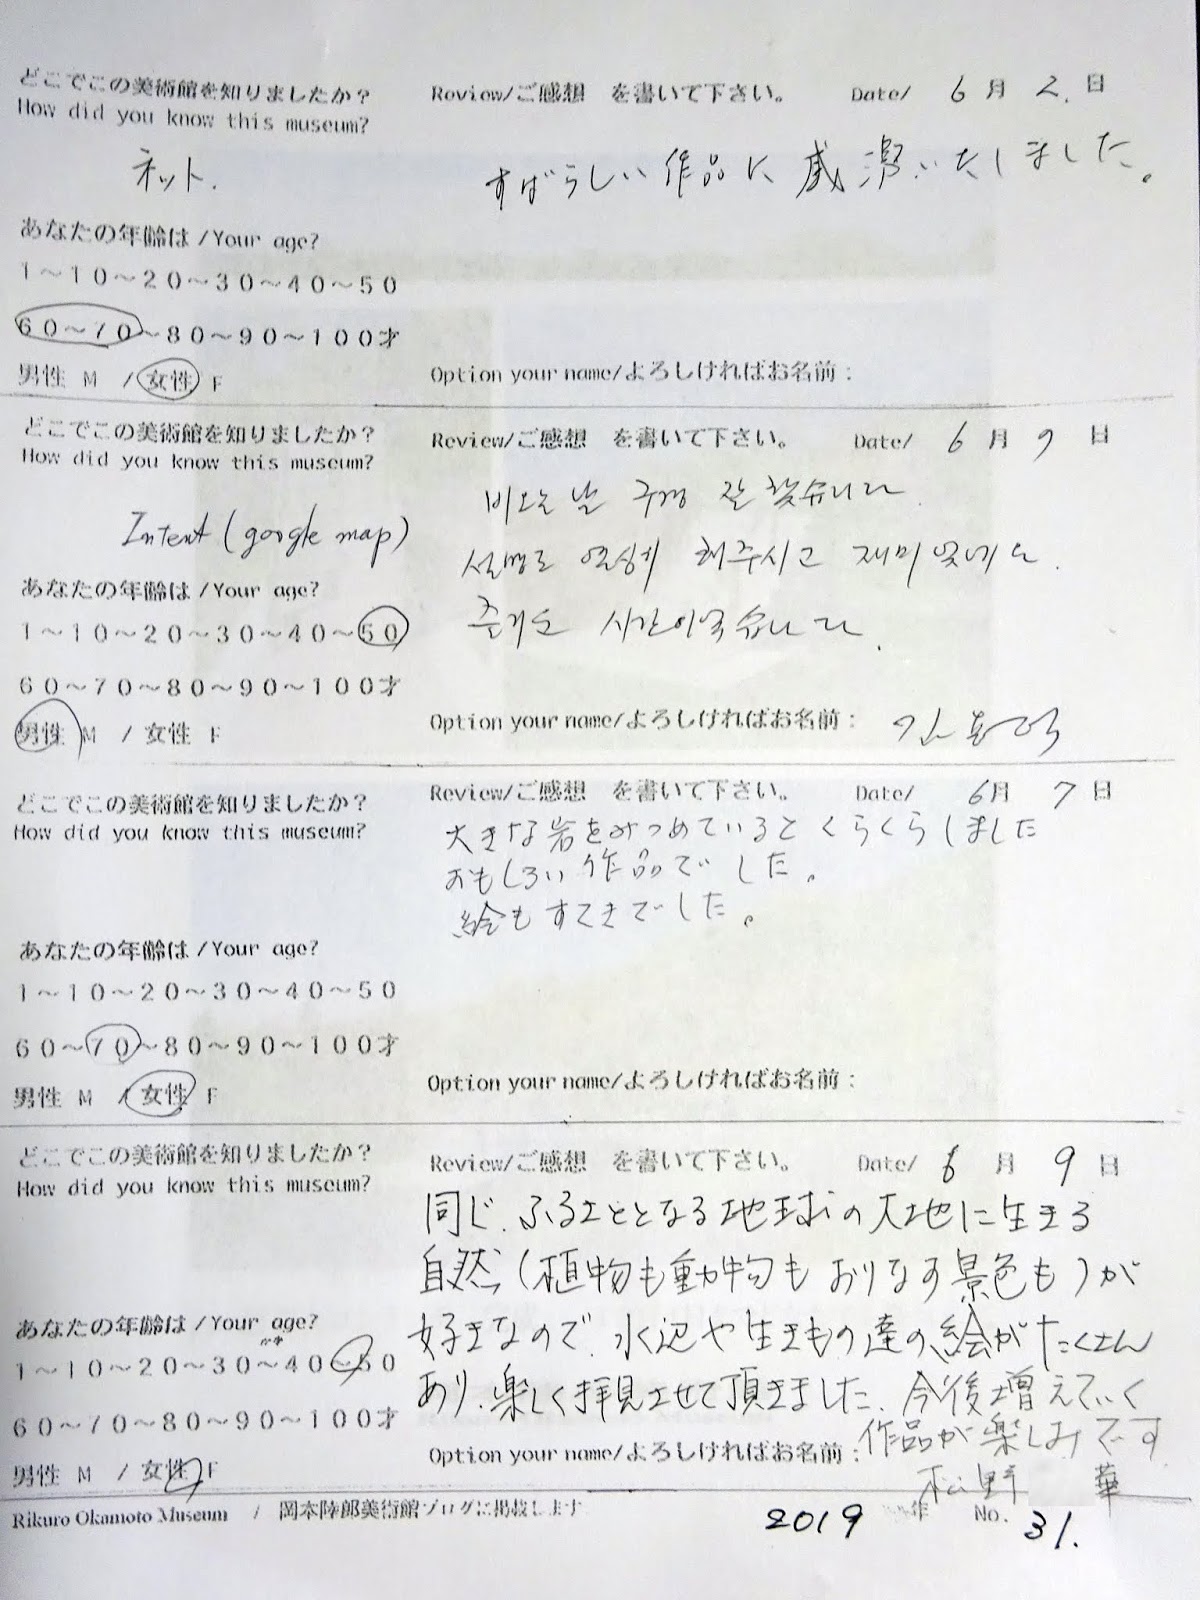 どこでこの美術館を知りましたか?
Review/ご感想 を書いて下さい。 Date/ 6 月 2. 日
How did you know this museum?
ネット.
すばらしい作品に感激いたしました。
あなたの年齢は/Your age?
1～10～20～30～40～50
60～70～80～90～100才
男性 M / 女性 F
Option your name/よろしければお名前:
どこでこの美術館を知りましたか?
Review/ご感想 を書いて下さい。 Date/ 6 月 7 日
How did you know this museum?
비오는 날 구경 잘 했습니다.
Intent (google map)
설명도 열심히 해주시고 재미있네요.
あなたの年齢は/Your age?
즐거운 시간이었습니다.
1～10～20～30～40～50
60～70～80～90～100才
男性 M / 女性 F
Option your name/よろしければお名前:
どこでこの美術館を知りましたか?
Review/ご感想 を書いて下さい。 Date/ 6月 7 日
How did you know this museum?
大きな岩をみつめていると くらくらしました
おもしろい作品でした。
絵もすてきでした。
あなたの年齢は/Your age?
1～10～20～30～40～50
60～70～80～90～100才
男性 M / 女性 F
Option your name/よろしければお名前:
どこでこの美術館を知りましたか?
Review/ご感想 を書いて下さい。 Date/ 6 月 9 日
How did you know this museum?
同じ、ふるさととなる地球の大地に生きる
自然(植物も動物もおりなす景色も)が
好きなので、水辺や生きもの達の絵がたくさん
あり、楽しく拝見させて頂きました、今後増えていく
作品が楽しみです
あなたの年齢は/Your age?
1～10～20～30～40～50
60～70～80～90～100才
男性 M / 女性 F
Option your name/よろしければお名前:
松野 華
Rikuro Okamoto Museum / 岡本陸郎美術館ブログに掲載します
2019 年 No. 31.